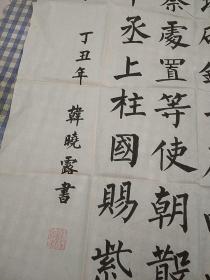 察處置等使朝散
丞上柱國賜紫
丁丑年
韓曉露書